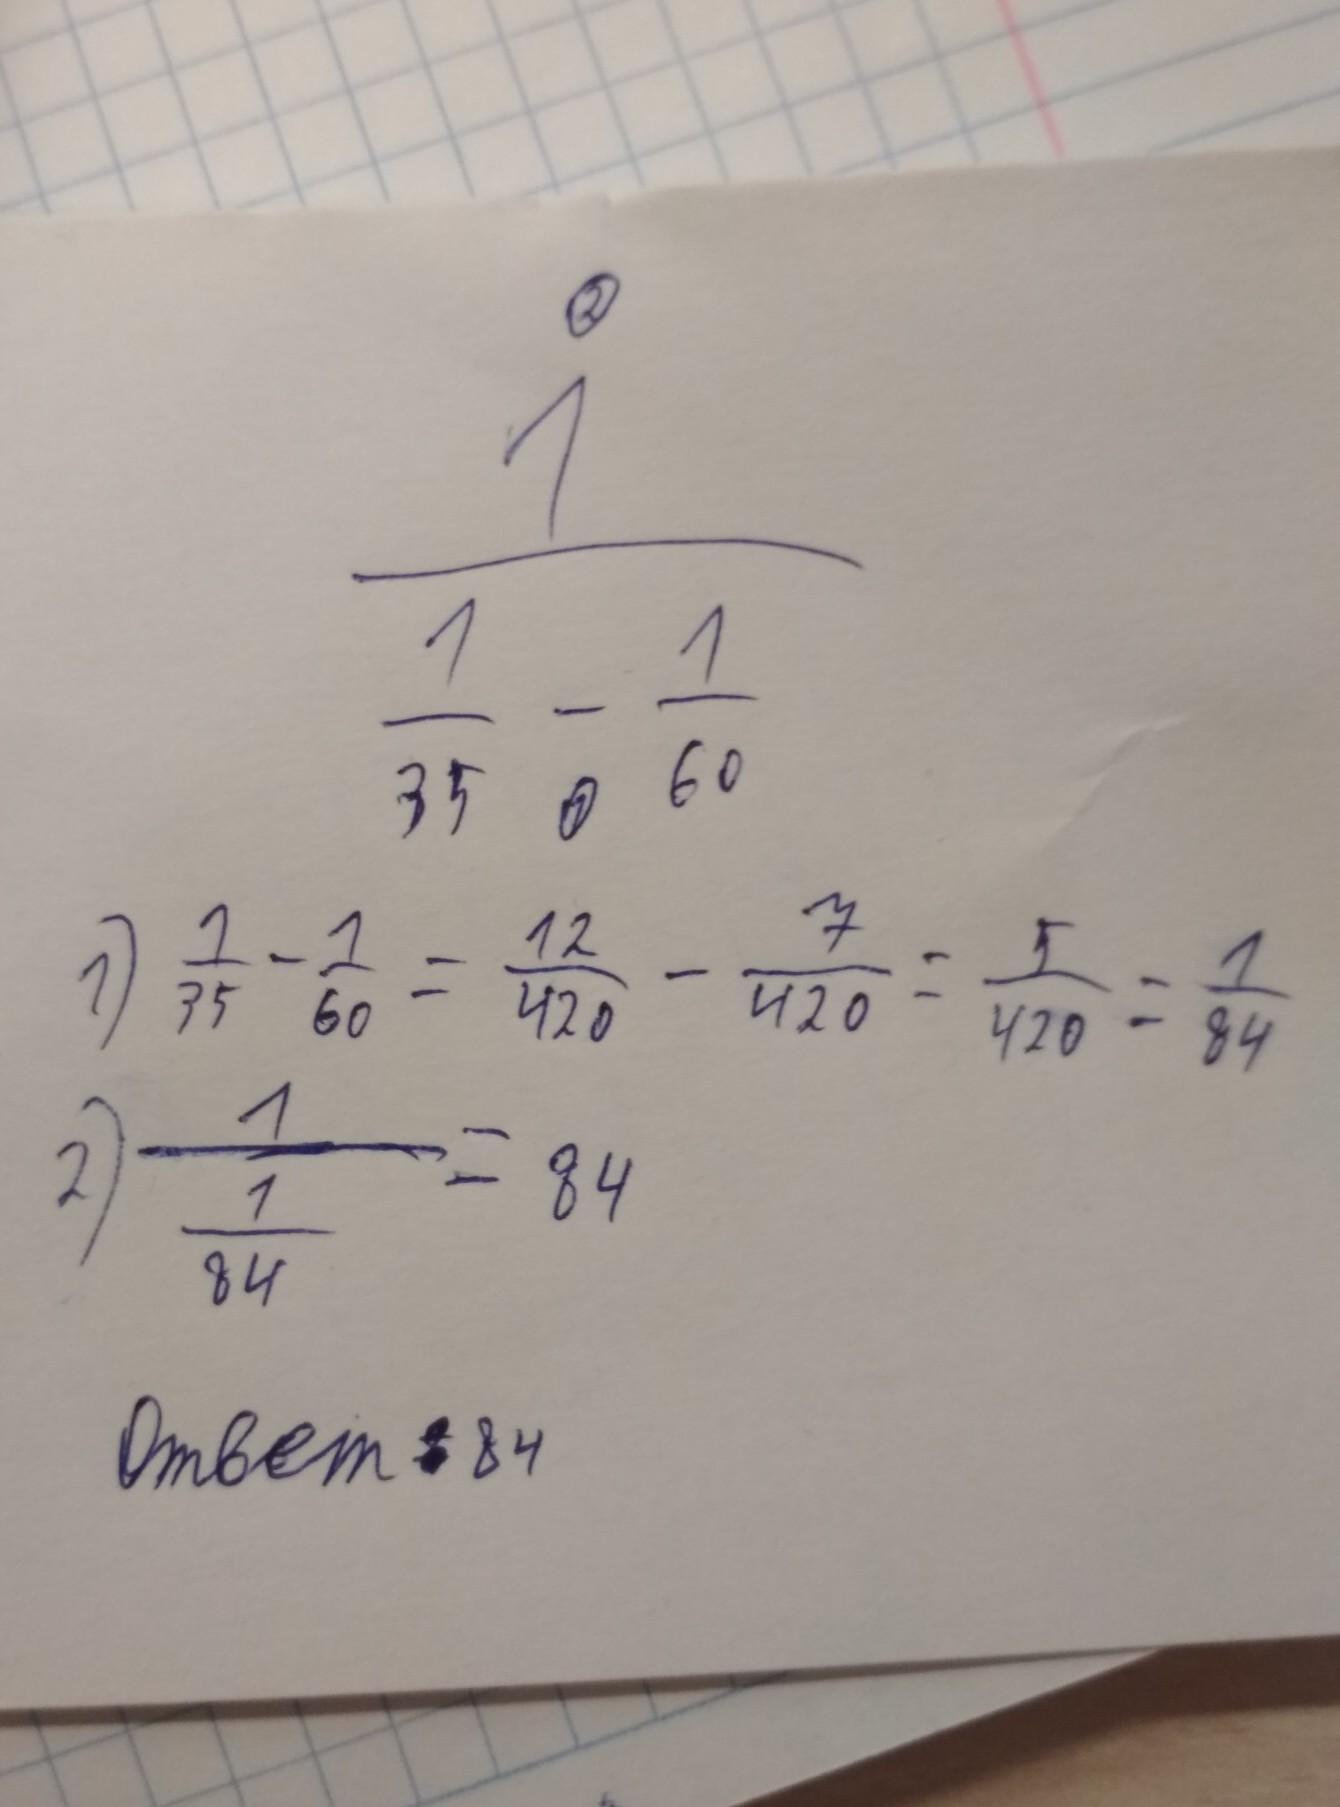 ②
1
1/35 - 1/60
①
1) 1/35 - 1/60 = 12/420 - 7/420 = 5/420 = 1/84
2) 1/(1/84) = 84
Ответ: 84